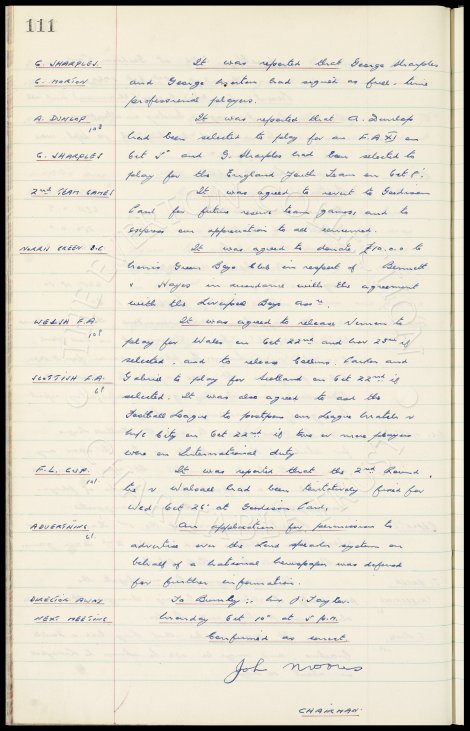 111
G. SHARPLES It was reported that George Sharples
G. MORTON and George Morton had signed as full-time
professional players.
A. DUNLOP It was reported that A. Dunlop
10/8 had been selected to play for an F.A. XI on
G. SHARPLES Oct 5th and G. Sharples had been selected to
play for the England Youth Team on Oct 8th.
2nd TEAM GAMES It was agreed to revert to Goodison
Park for future reserve team games and to
express our appreciation to all concerned.
NORRIS GREEN B.C It was agreed to donate £10.0.0 to
Norris Green Boys Club in respect of Bennett
& Hayes in accordance with the agreement
with the Liverpool Boys Assn.
WELSH F.A. It was agreed to release Vernon to
play for Wales on Oct 22nd and Nov 23rd if
selected, and to release Collins, Parker and
SCOTTISH F.A. Gabriel to play for Scotland on Oct 22nd if
selected. It was also agreed to ask the
Football League to postpone our League match v
M/c City on Oct 22nd if two or more players
were on International duty
F.L. CUP. It was reported that the 2nd Round
tie v Walsall had been tentatively fixed for
Wed. Oct 26th at Goodison Park,
ADVERTISING An application for permission to
advertise over the Loud speaker system on
behalf of a National Newspaper was deferred
for further information.
DIRECTOR AWAY To Burnley :- Mr J. Taylor.
NEXT MEETING Monday Oct 10th at 5 p.m.
Confirmed as correct
John Moores
CHAIRMAN.